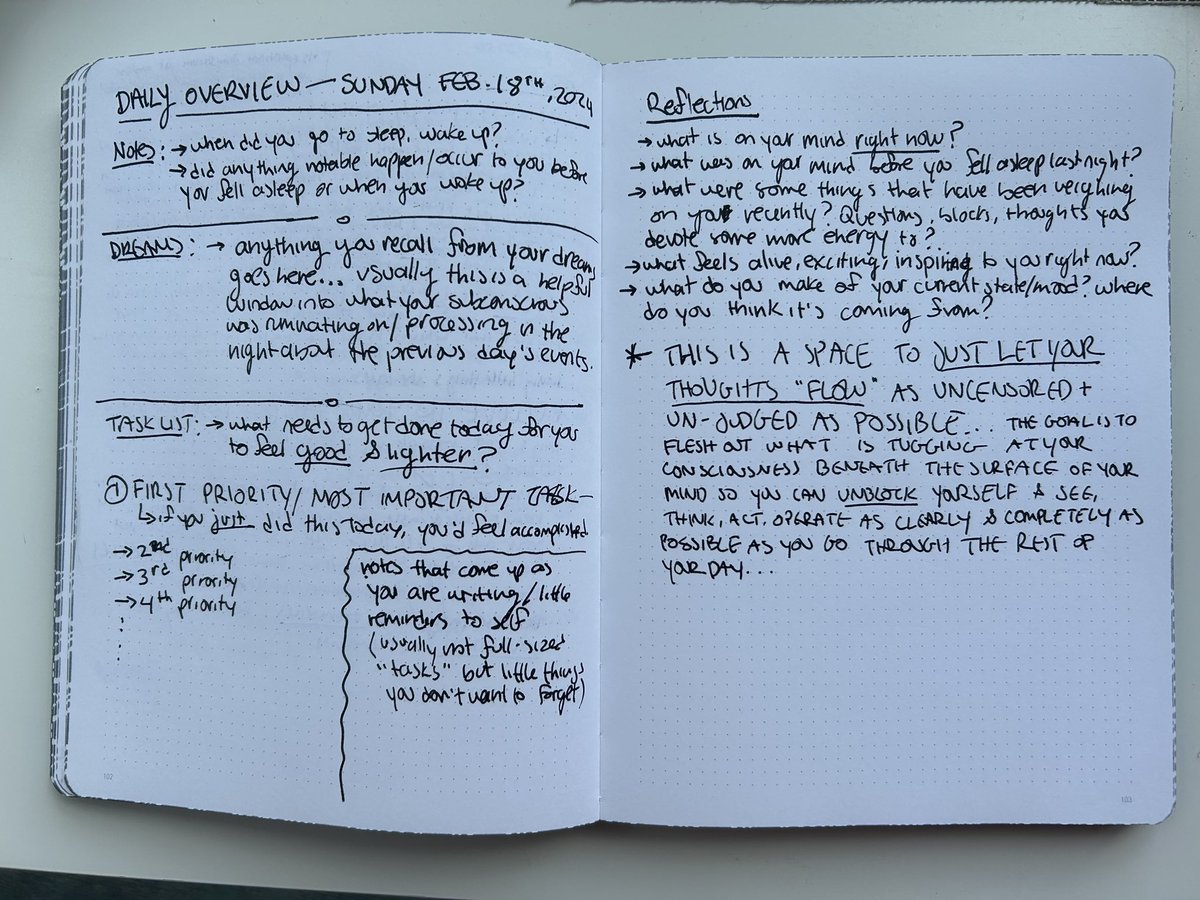 DAILY OVERVIEW — SUNDAY FEB. 18TH, 2024
Notes: → when did you go to sleep, wake up?
→ did anything notable happen/occur to you before
you fell asleep or when you woke up?
DREAMS: → anything you recall from your dreams
goes here... usually this is a helpful
window into what your subconscious
was ruminating on/processing in the
night about the previous day's events.
TASK LIST: → what needs to get done today for you
to feel good & lighter?
① FIRST PRIORITY/MOST IMPORTANT TASK —
↳ if you just did this today, you'd feel accomplished
→ 2nd priority
→ 3rd priority
→ 4th priority
notes that come up as
you are writing/little
reminders to self
(usually not full-sized
"tasks" but little things
you don't want to forget)
102
Reflections
→ what is on your mind right now?
→ what was on your mind before you fell asleep last night?
→ what were some things that have been weighing
on you recently? Questions, blocks, thoughts you
devote some more energy to?
→ what feels alive, exciting, inspiring to you right now?
→ what do you make of your current state/mood? where
do you think it's coming from?
* THIS IS A SPACE TO JUST LET YOUR
THOUGHTS "FLOW" AS UNCENSORED +
UN-JUDGED AS POSSIBLE... THE GOAL IS TO
FLESH OUT WHAT IS TUGGING AT YOUR
CONSCIOUSNESS BENEATH THE SURFACE OF YOUR
MIND SO YOU CAN UNBLOCK YOURSELF & SEE,
THINK, ACT, OPERATE AS CLEARLY & COMPLETELY AS
POSSIBLE AS YOU GO THROUGH THE REST OF
YOUR DAY...
103